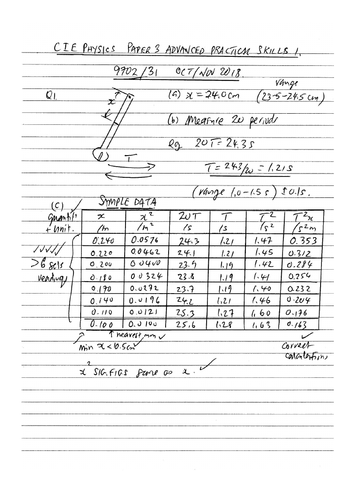 CIE PHYSICS PAPER 3 ADVANCED PRACTICAL SKILLS 1.
9702/31 OCT/NOV 2018.
Q1. x (a) x = 24.0cm range (23.5-24.5cm)
(b) Measure 20 periods
T eg. 20T = 24.3s
T = 24.3/20 = 1.21s
(range 1.0-1.5s) ±0.1s.
(c) SAMPLE DATA
quantity + unit.
x /m x² /m² 20T /s T /s T² /s² T²x /s²m
0.240 0.0576 24.3 1.21 1.47 0.353
0.220 0.0462 24.1 1.21 1.45 0.312
0.200 0.0400 23.9 1.19 1.42 0.284
0.180 0.0324 23.8 1.19 1.41 0.254
0.170 0.0272 23.7 1.19 1.40 0.232
0.140 0.0196 24.2 1.21 1.46 0.204
0.110 0.0121 25.3 1.27 1.60 0.176
0.100 0.0100 25.6 1.28 1.63 0.163
> 6 sets readings
↑ nearest mm ✓
min x < 10.5cm ✓
correct calculations
x² SIG.FIGS same as x. ✓